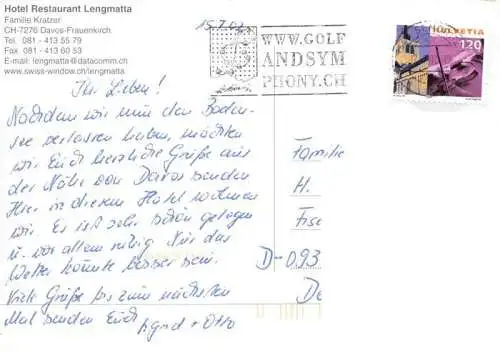 Hotel Restaurant Lengmatta
Familie Kratzer
CH-7276 Davos-Frauenkirch
Tel. 081 - 413 55 79
Fax 081 - 413 60 53
E-mail: lengmatta@datacomm.ch
www.swiss-window.ch/lengmatta
15.7.02
WWW.GOLF
ANDSYM
PHONY.CH
HELVETIA
120
Ihr Lieben!
Nachdem wir nun den Boden-
see verlassen haben, möchten
wir Euch herzliche Grüße aus
der Nähe von Davos senden
Hier in diesem Hotel wohnen
wir. Es ist sehr schön gelegen
u. vor allem ruhig. Nur das
Wetter könnte besser sein.
Viele Grüße bis zum nächsten
Mal senden Euch
+ Otto
Familie
H.
D-093